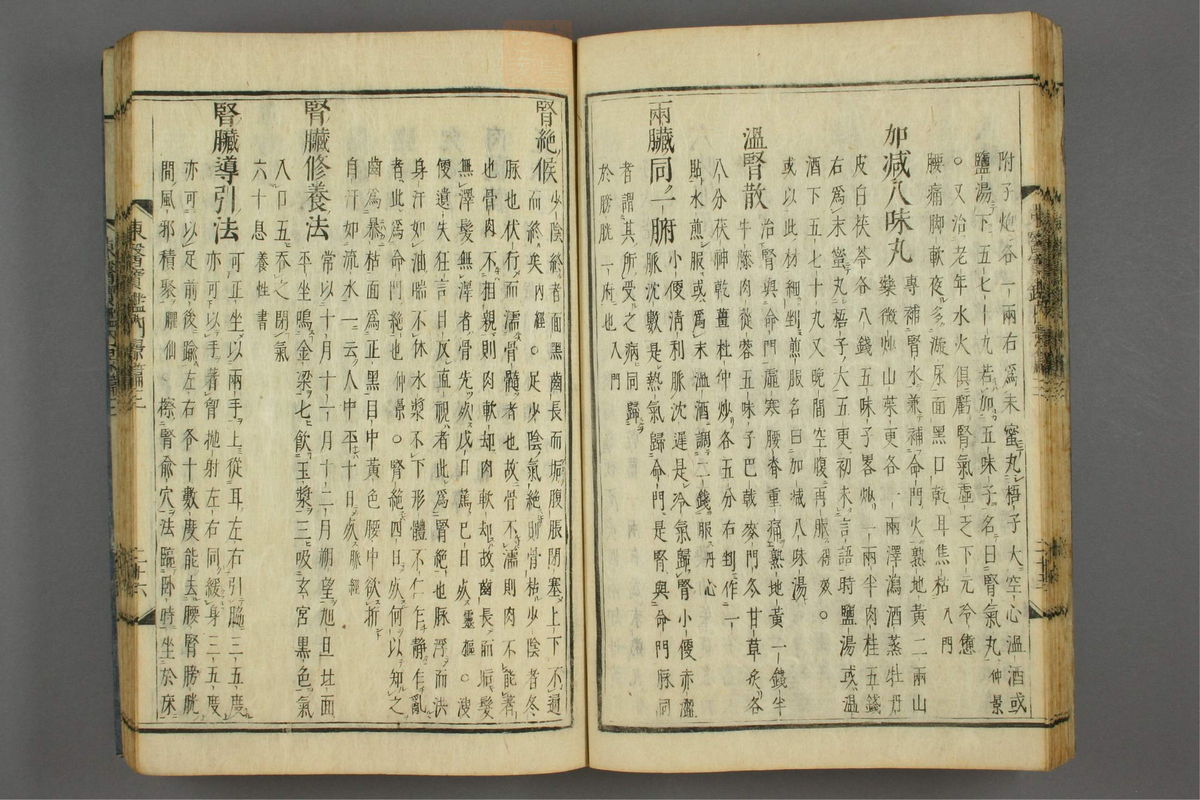 附子炮各一兩右爲末蜜丸梧子大空心溫酒或
鹽湯下五七十九若加五味子名曰腎氣丸仲景
○又治老年水火俱虧腎氣虛乏下元冷憊
腰痛脚軟夜多漩尿面黑口乾耳焦枯入門
加减八味丸 專補腎水兼補命門火熟地黃二兩山
藥微炒山茱萸各一兩澤瀉酒蒸牡丹
皮白茯苓各八錢五味子畧炒一兩半肉桂五錢
右爲末蜜丸梧子大五更初未言語時鹽湯或溫
酒下五七十丸又晚間空腹再服得效○
或以此材細剉煎服名曰加減八味湯
溫腎散 治腎與命門虛寒腰脊重痛熟地黃一錢半
牛膝肉從蓉五味子巴戟麥門冬甘草灸各
八分茯神乾薑杜仲炒各五分右剉作一
貼水煎服或爲末溫酒調二錢服丹心
兩臟同一腑 小便淸利脈沈遲是冷氣歸腎小便赤澁
脈沈數是熱氣歸命門是腎與命門脈同
者謂其所受之病同歸
於膀胱一府也
腎絶候 少陰終者面黑齒長而垢腹脹閉塞上下不通
而終矣內經○足少陰氣絶則骨枯少陰者冬
脉也伏行而濡骨髓者也故骨不濡則肉不能著
也骨肉不相親則肉軟却肉軟却故齒長而垢髮
無澤髮無澤者骨先死戊日篤巳日死靈樞○溲
便遺失狂言目反直視者此爲腎絶也脉浮而洪
身汗如油喘不休水漿不下形體不仁乍靜乍亂
者此爲命門絶也仲景○腎絶四日死何以知之
齒爲暴枯面爲正黑目中黃色腰中欲折
自汗如流水一云人中平十日死脈經
腎臟修養法 常以十月十一月十二月朔望旭旦北面
平坐鳴金梁七飮玉漿三吸玄宮黑色氣
入口五呑之閉氣
六十息養性書
腎臟導引法 可正坐以兩手上從耳左右引脇三五度
亦可以手著胷抛射左右同緩身三五度
亦可以足前後踰左右各十數度能去腰腎膀胱
間風邪積聚臞仙○擦腎兪穴法臨卧時坐於床